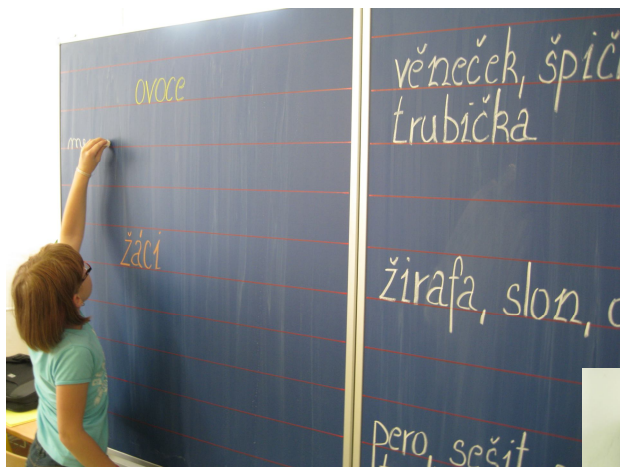 ovoce
žáci
věneček,
trubička
žirafa, slon,
pero, sešit